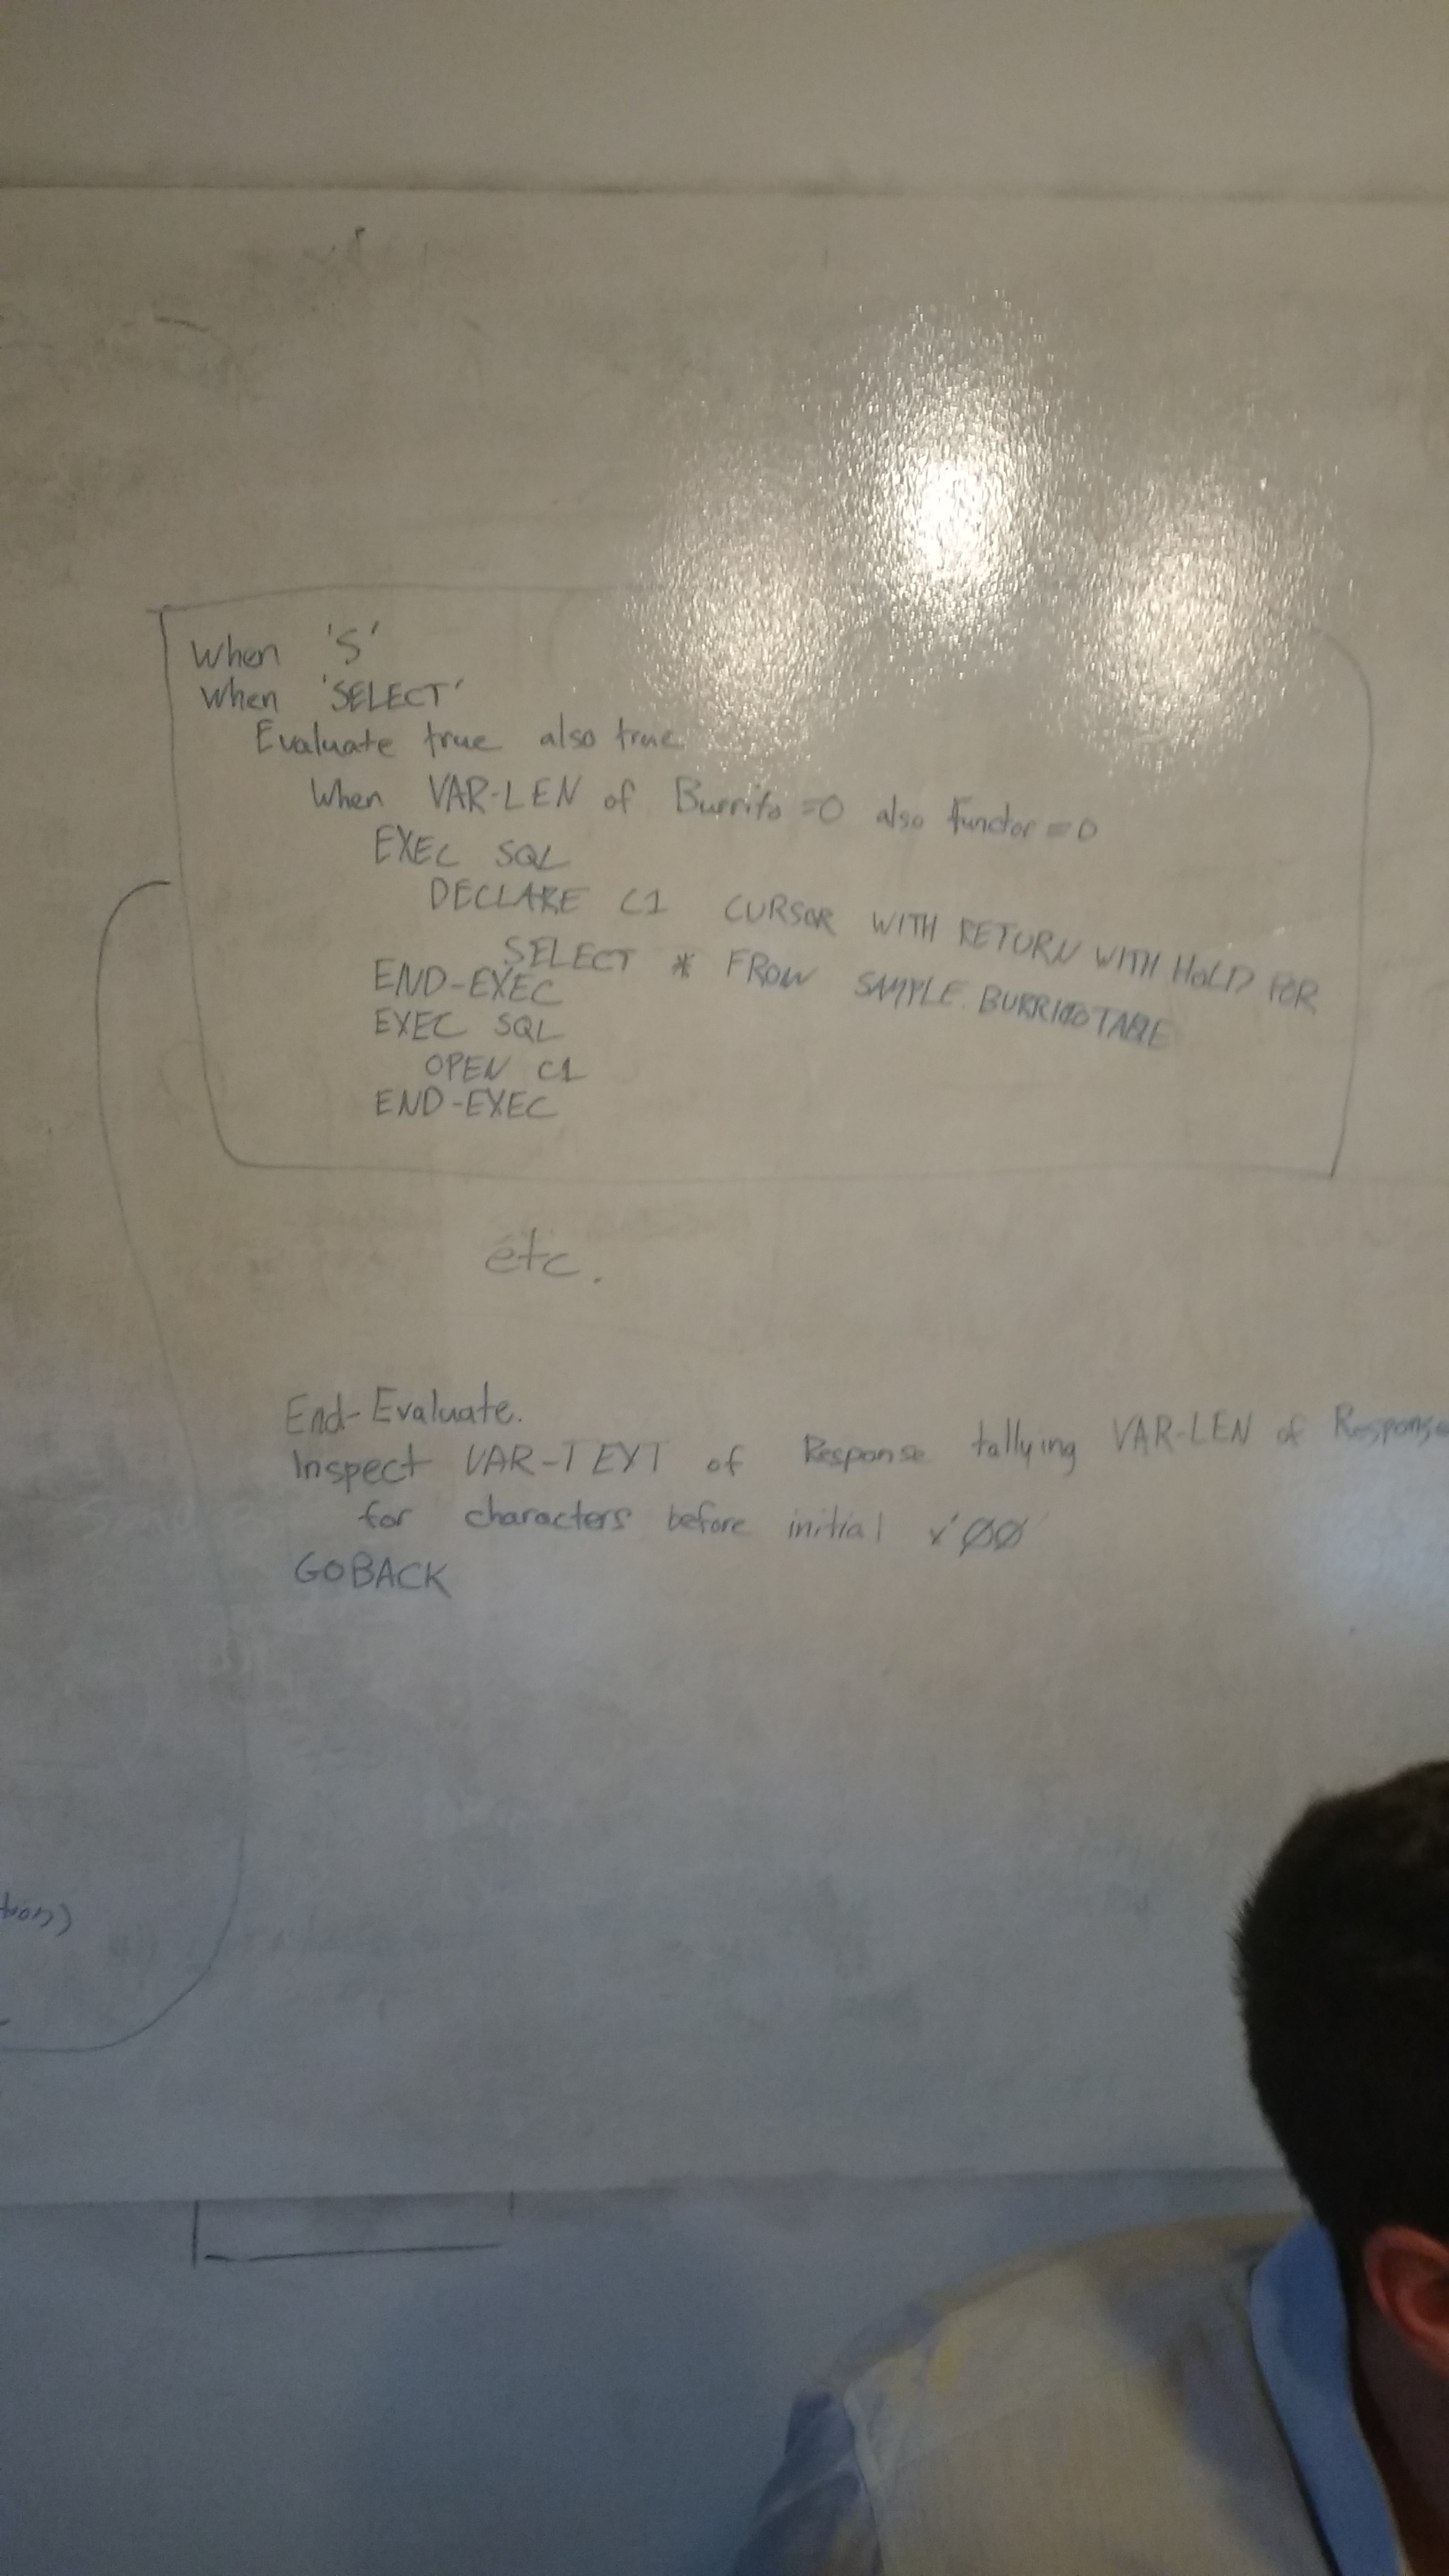 When 'S'
When 'SELECT'
Evaluate true also true
When VAR-LEN of Burrito =0 also functor =0
EXEC SQL
DECLARE C1 CURSOR WITH RETURN WITH HOLD FOR
SELECT * FROM SAMPLE.BURRITOTABLE
END-EXEC
EXEC SQL
OPEN C1
END-EXEC
etc.
End-Evaluate.
Inspect VAR-TEXT of Response tallying VAR-LEN of Response
for characters before initial x'00'
GOBACK